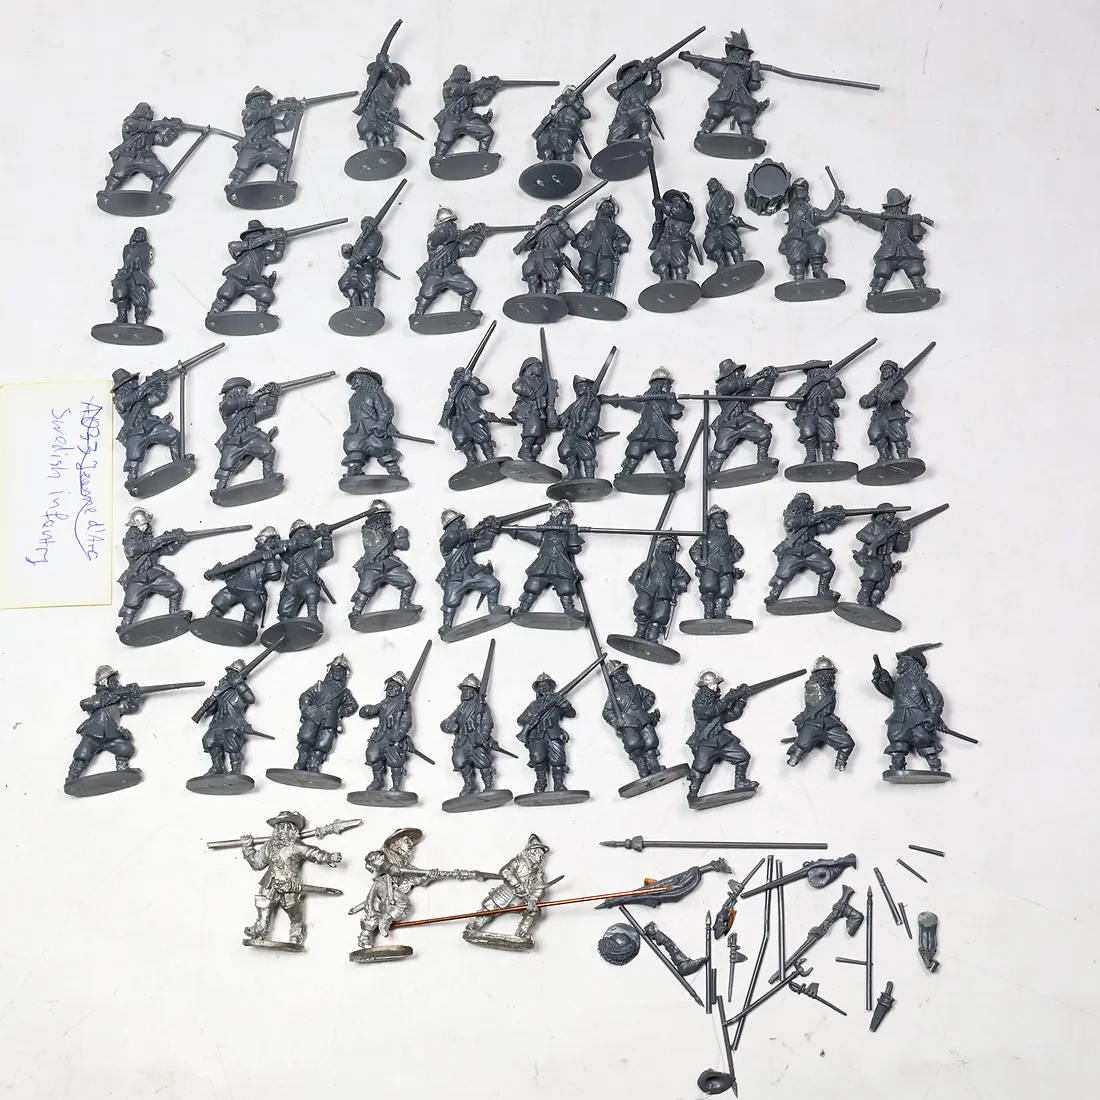 A033 Jeanne d'Arc
Swedish infantry